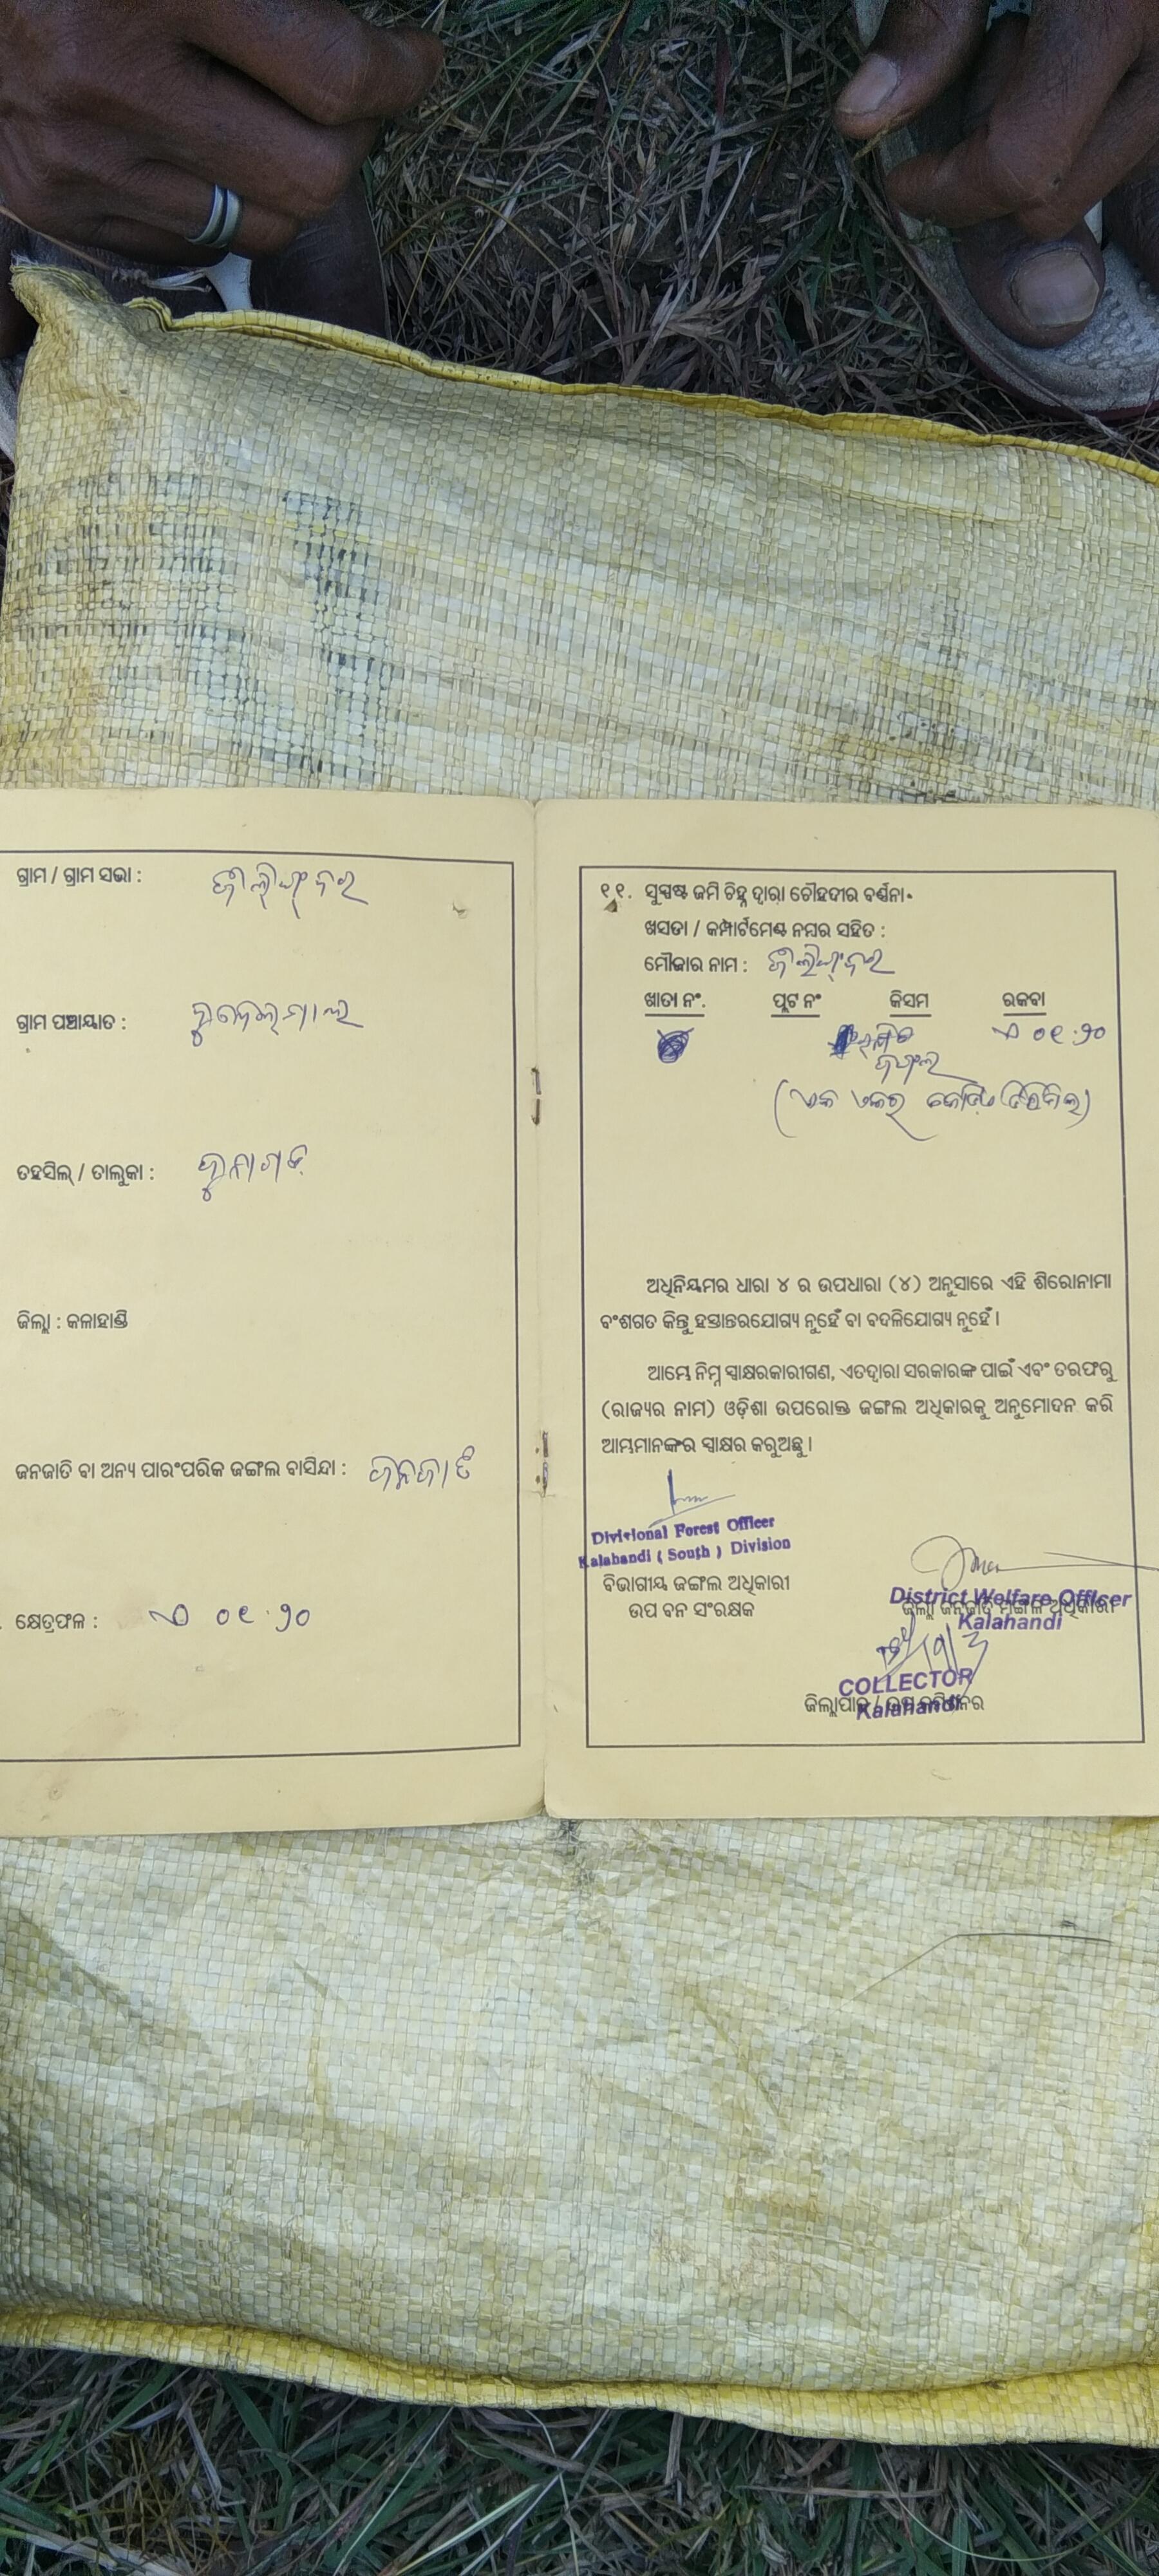 ଗ୍ରାମ / ଗ୍ରାମ ସଭା :
ଗ୍ରାମ ପଞ୍ଚାୟାତ :
ତହସିଲ୍ / ତାଲୁକା : ଜୁନାଗଡ଼
ଜିଲ୍ଲା : କଳାହାଣ୍ଡି
ଜନଜାତି ବା ଅନ୍ୟ ପାରଂପରିକ ଜଙ୍ଗଲ ବାସିନ୍ଦା : ଜନଜାତି
. କ୍ଷେତ୍ରଫଳ : ଏ ୦୧.୨୦
୧୧. ସୁସ୍ପଷ୍ଟ ଜମି ଚିହ୍ନ ଦ୍ୱାରା ଚୌହଦୀର ବର୍ଣ୍ଣନା.
ଖସଡା / କମ୍ପାର୍ଟମେଣ୍ଟ ନମ୍ବର ସହିତ :
ମୌଜାର ନାମ :
ଖାତା ନଂ. ପ୍ଲଟ ନଂ କିସମ ରକବା
ଏ ୦୧.୨୦
ଜଙ୍ଗଲ
ଅଧିନିୟମର ଧାରା ୪ ର ଉପଧାରା (୪) ଅନୁସାରେ ଏହି ଶିରୋନାମା
ବଂଶଗତ କିନ୍ତୁ ହସ୍ତାନ୍ତରଯୋଗ୍ୟ ନୁହେଁ ବା ବଦଳିଯୋଗ୍ୟ ନୁହେଁ ।
ଆମ୍ଭେ ନିମ୍ନ ସ୍ୱାକ୍ଷରକାରୀଗଣ, ଏତଦ୍ୱାରା ସରକାରଙ୍କ ପାଇଁ ଏବଂ ତରଫରୁ
(ରାଜ୍ୟର ନାମ) ଓଡ଼ିଶା ଉପରୋକ୍ତ ଜଙ୍ଗଲ ଅଧିକାରକୁ ଅନୁମୋଦନ କରି
ଆମ୍ଭମାନଙ୍କର ସ୍ୱାକ୍ଷର କରୁଅଛୁ ।
Divisional Forest Officer
Kalahandi ( South ) Division
ବିଭାଗୀୟ ଜଙ୍ଗଲ ଅଧିକାରୀ
ଉପ ବନ ସଂରକ୍ଷକ
District Welfare Officer
ଜିଲ୍ଲା ଜନଜାତି ମଙ୍ଗଳ ଅଧିକାରୀ
Kalahandi
COLLECTOR
Kalahandi